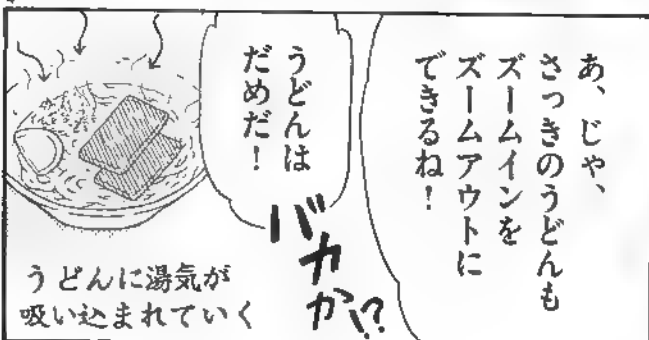 あ、じゃ、
さっきのうどんも
ズームインを
ズームアウトに
できるね！
うどんは
だめだ！
バカか!?
うどんに湯気が
吸い込まれていく